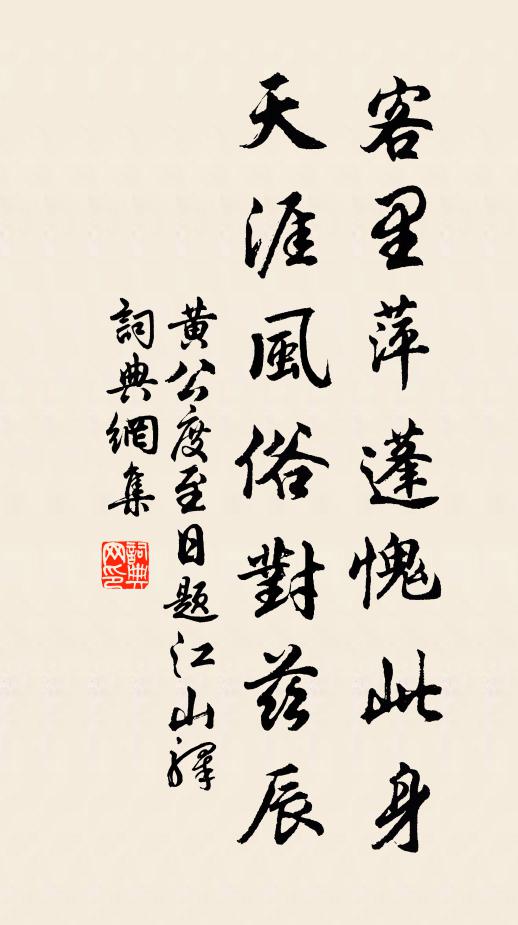 客里萍蓬愧此身
天涯風俗對茲辰
黃公度至日題江山驛
詞典網集
詞典
网印